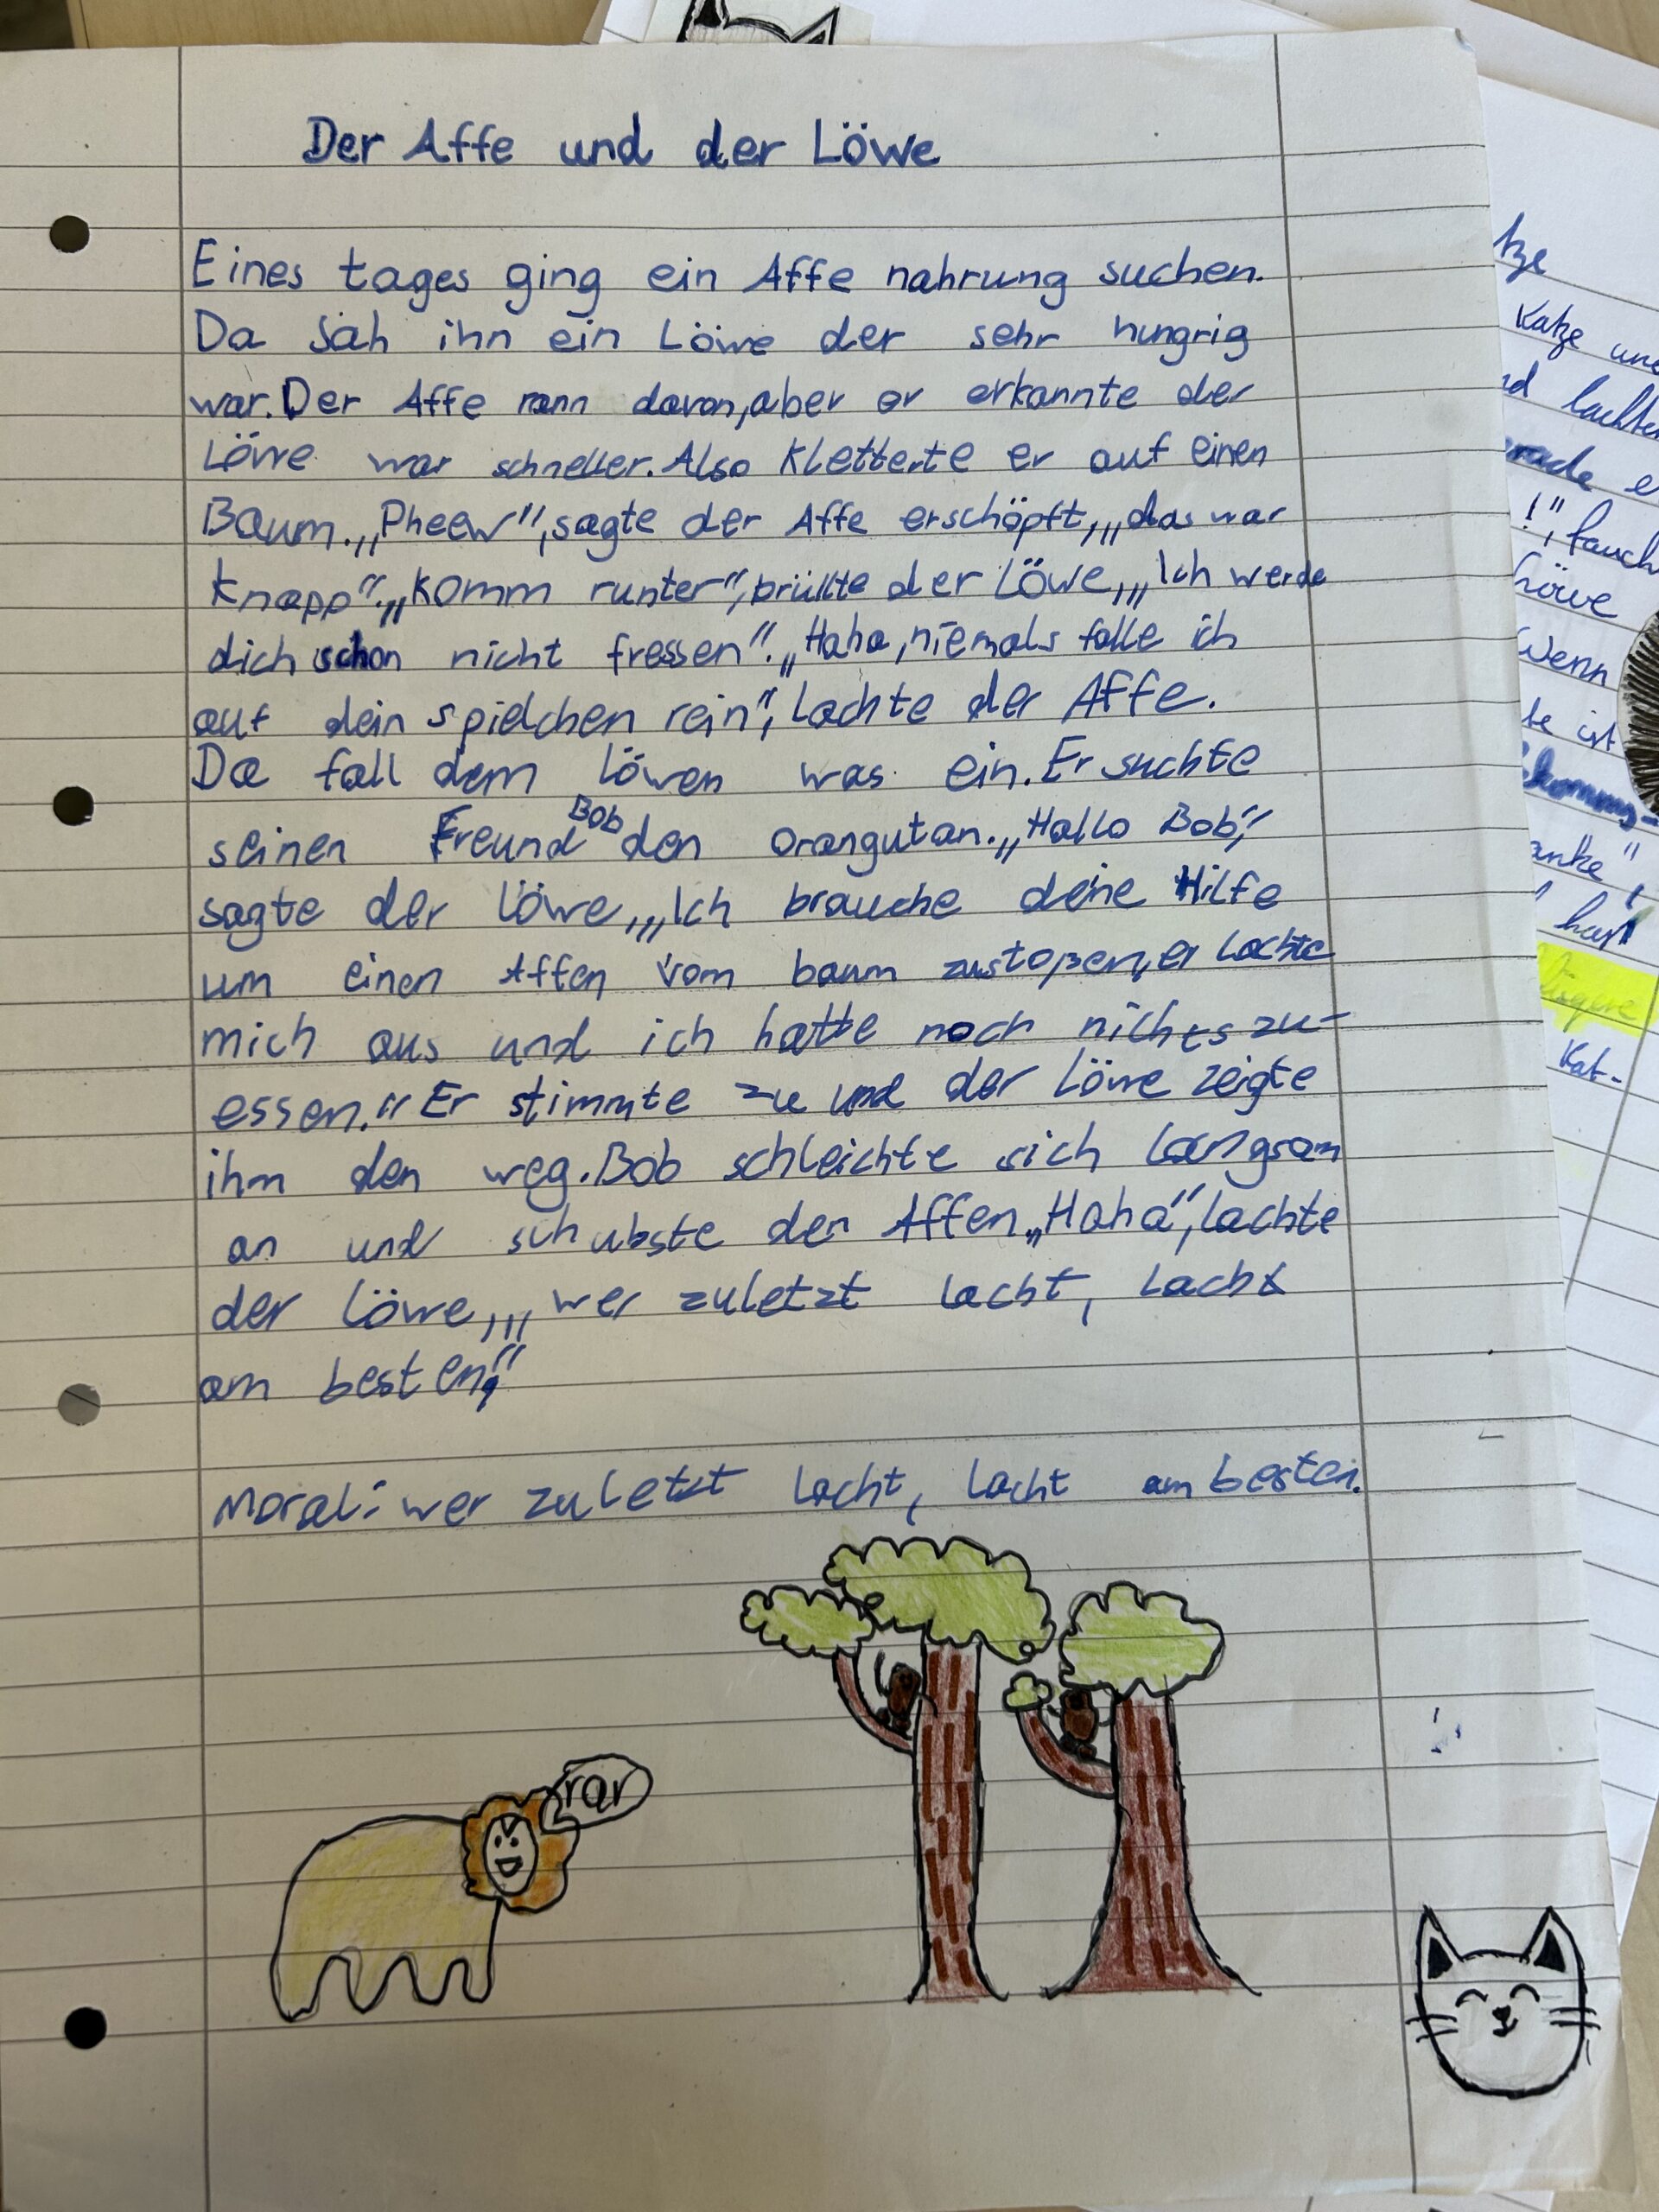 Der Affe und der Löwe
Eines tages ging ein Affe nahrung suchen.
Da sah ihn ein Löwe der sehr hungrig
war. Der Affe rann davon, aber er erkannte der
Löwe war schneller. Also kletterte er auf einen
Baum. „Pheew", sagte der Affe erschöpft, „das war
knapp". „Komm runter", brüllte der Löwe, „Ich werde
dich schon nicht fressen". „Haha, niemals falle ich
auf dein spielchen rein", lachte der Affe.
Da fall dem löwen was ein. Er suchte
seinen Freund Bob den orangutan. „Hallo Bob",
sagte der löwe, „Ich brauche deine Hilfe
um einen Affen vom baum zustoßen, er lachte
mich aus und ich hatte noch nichts zu-
essen." Er stimmte zu und der löwe zeigte
ihm den weg. Bob schleichte sich langsam
an und schubste den Affen „Haha", lachte
der löwe, „wer zuletzt lacht, lacht
am besten!"
Moral: wer zuletzt lacht, lacht am besten.
rar
tze
Katze und
nd lachte
rade e
!", fauch
Löwe
Wenn
te ist
anke",
hat
Kat-